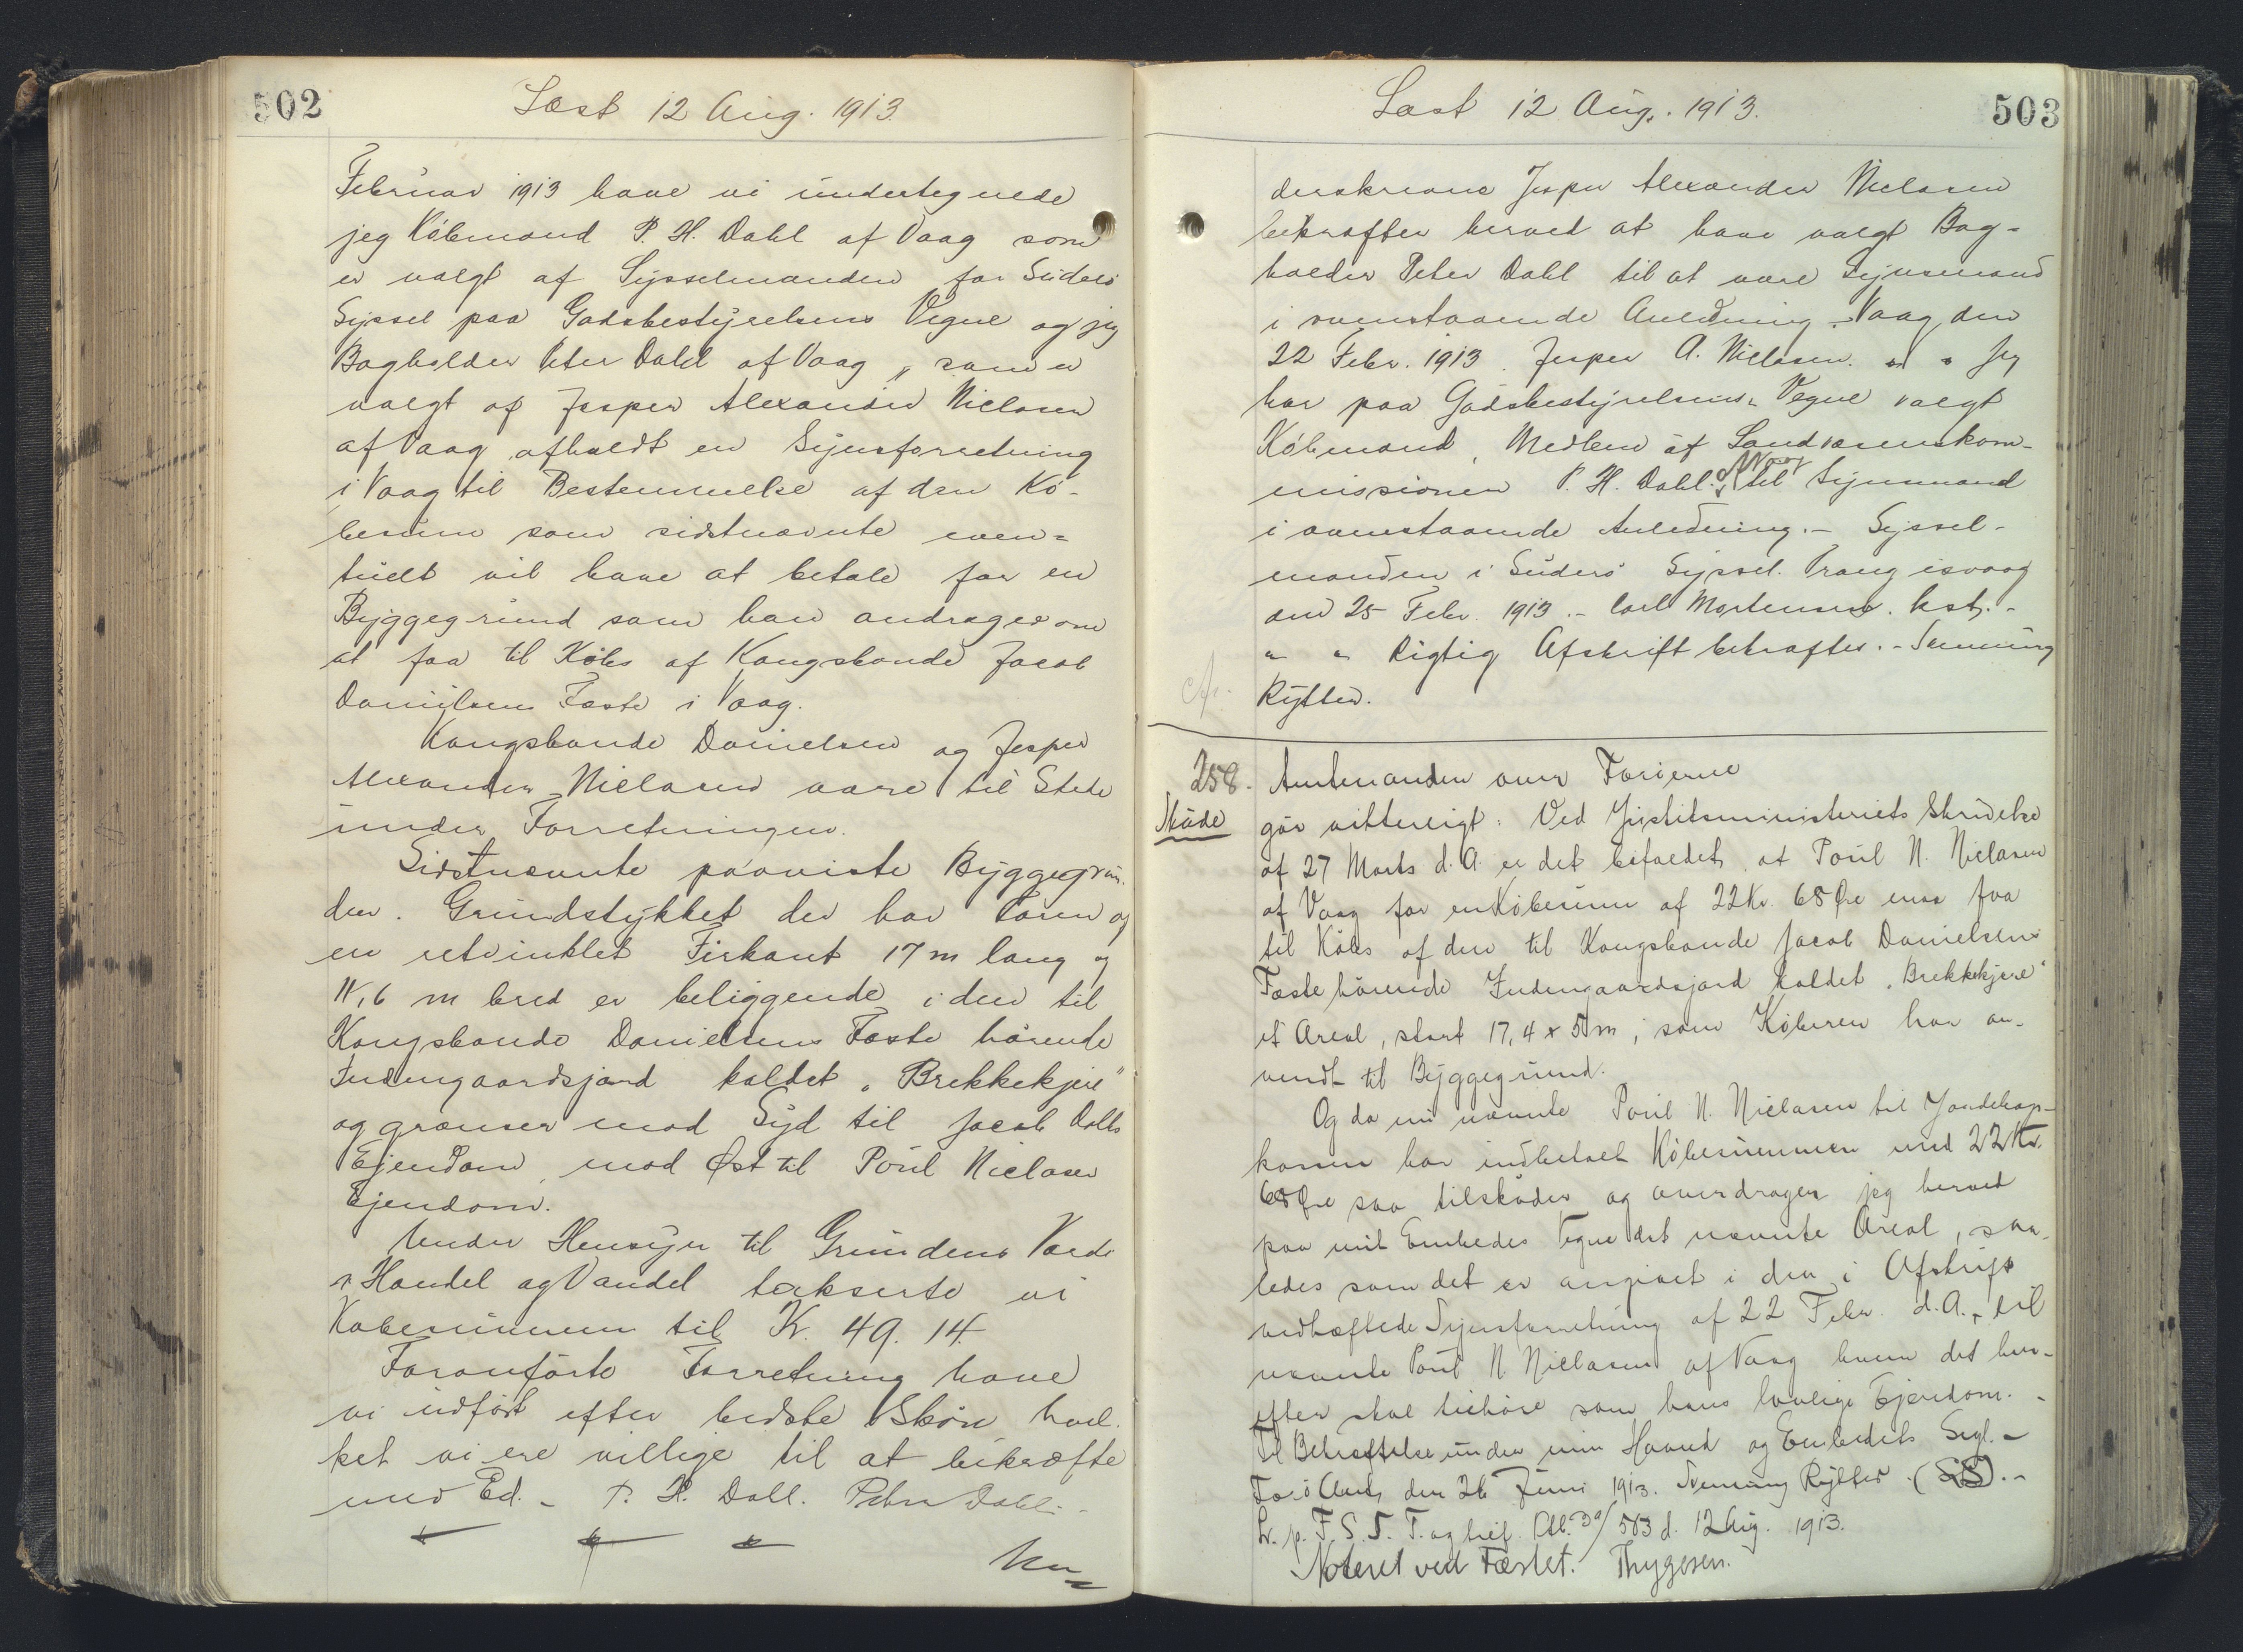 502
Læst 12 Aug. 1913.
Februar 1913 have vi undertegnede
jeg Købmand P. H. Dahl af Vaag som
er valgt af Sysselmanden for Suderø
Syssel paa Godsbestyrelsens Vegne og jeg
Bogholder Peter Dahl af Vaag, som er
valgt af Jesper Alexander Niclasen
af Vaag afholdt en Synsforretning
i Vaag til Bestemmelse af den Kø-
besum som sidstnævnte even=
tuelt vil have at betale for en
Byggegrund som han andrager om
at faa til Købs af Kongsbonde Jacob
Danielsens Fæste i Vaag.
Kongsbonde Danielsen og Jesper
Alexander Niclasen vare til Stede
under Forretningen.
Sidstnævnte paaviste Byggegrun-
den. Grundstykket der har Form af
en retvinklet Firkant 17 m lang og
11,6 m bred er beliggende i den til
Kongsbonde Danielsens Fæste hørende
Indengaardsjord kaldet "Brekkekjere"
og grænser mod Syd til Jacob Dahls
Ejendom, mod Øst til Poul Niclasen
Ejendom.
Under Hensyn til Grundens Værdi
i Handel og Vandel takserte vi
Købesummen til Kr. 49. 14.
Foranførte Forretning have
vi udført efter bedste Skøn hvil-
ket vi ere villige til at bekræfte
med Ed. - P. H. Dahl. Peter Dahl.-
Un=
Læst 12 Aug. 1913.
503
derskrevne Jesper Alexander Niclasen
bekræfter herved at have valgt Bog-
holder Peter Dahl til at være Synsmand
i ovenstaaende Anledning. Vaag, den
22 Febr. 1913. Jesper A. Niclasen. " " Jeg
har paa Godsbestyrelsens Vegne valgt
Købmand, Medlem af Landvæsenskom-
missionen P. H. Dahl af Vaag til Synsmand
i ovenstaaende Anledning. - Syssel-
manden i Suderø Syssel. Trangisvaag
den 25 Febr. 1913. - Carl Mortensen. kst. -
" " Rigtig Afskrift bekræftes. - Svenning
Rytter.
258.
Skøde
Amtmanden over Færøerne
gør vitterligt: Ved Justitsministeriets Skrivelse
af 27 Marts d. A. er det bifaldet, at Poul N. Niclasen
af Vaag for en Købesum af 22 Kr. 68 Øre maa faa
til Købs af den til Kongsbonde Jacob Danielsens
Fæste hørende Indengaardsjord kaldet "Brekkekjere"
et Areal, stort 17,4 x 5 m, som Køberen har an-
vendt til Byggegrund.
Og da nu nævnte Poul N. Niclasen til Jordebogs-
kassen har indbetalt Købesummen med 22 Kr.
68 Øre saa tilskøder og overdrager jeg herved
paa mit Embedes Vegne det nævnte Areal, saa-
ledes som det er angivet i den i Afskrift
vedhæftede Synsforretning af 22 Febr. d. A., til
nævnte Poul N. Niclasen af Vaag hvem det her-
efter skal tilhøre som hans lovlige Ejendom. -
Til Bekræftelse under min Haand og Embedets Segl. -
Færø Amt, den 26 Juni 1913. Svenning Rytter. (LS). -
Lr. p. F. S. S. T. og tref. Ptb. Da/503 d. 12 Aug. 1913.
Noteret ved Fæstet. Thygesen.